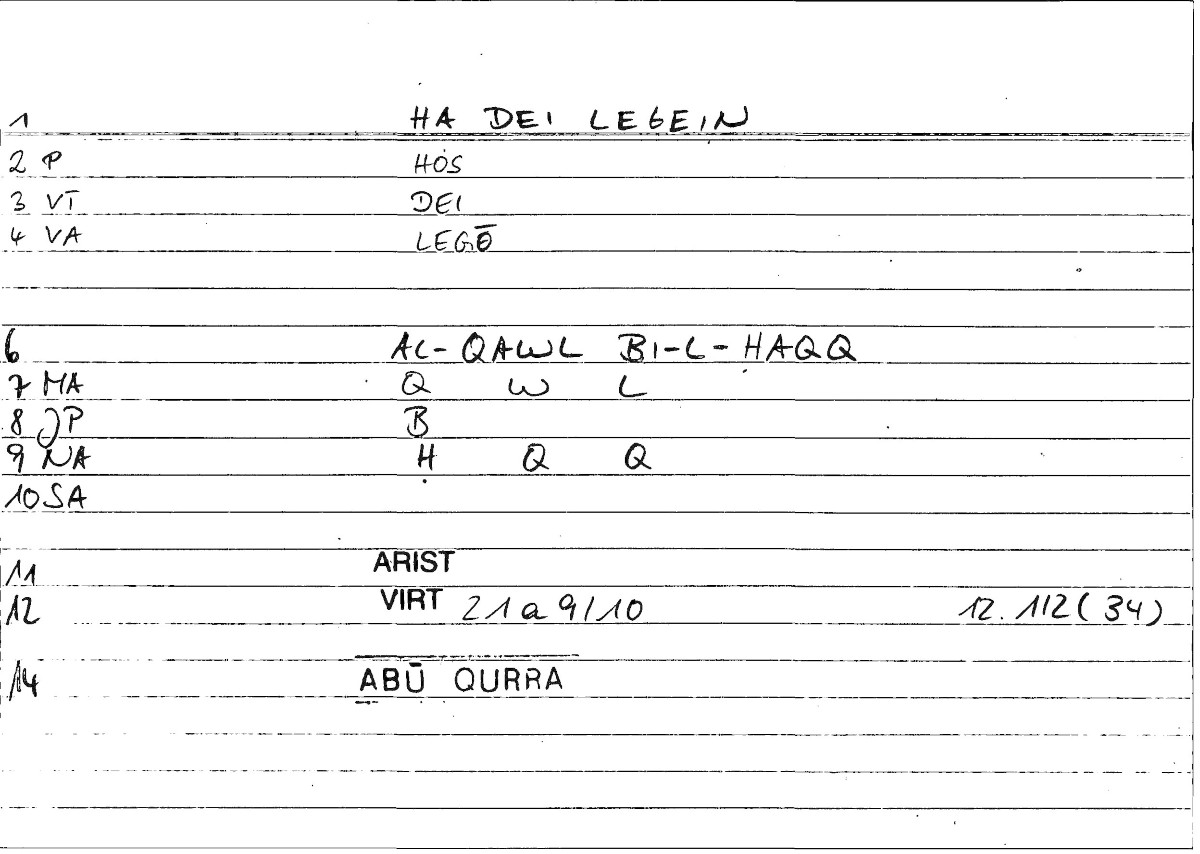 1 HA DEI LEGEIN
2 P HÓS
3 VT DEI
4 VA LEGŌ
6 AL-QAWL BI-L-ḤAQQ
7 MA Q W L
8 JP B
9 NA Ḥ Q Q
10 SA
11 ARIST
12 VIRT 21a9/10 12.112(34)
14 ABŪ QURRA